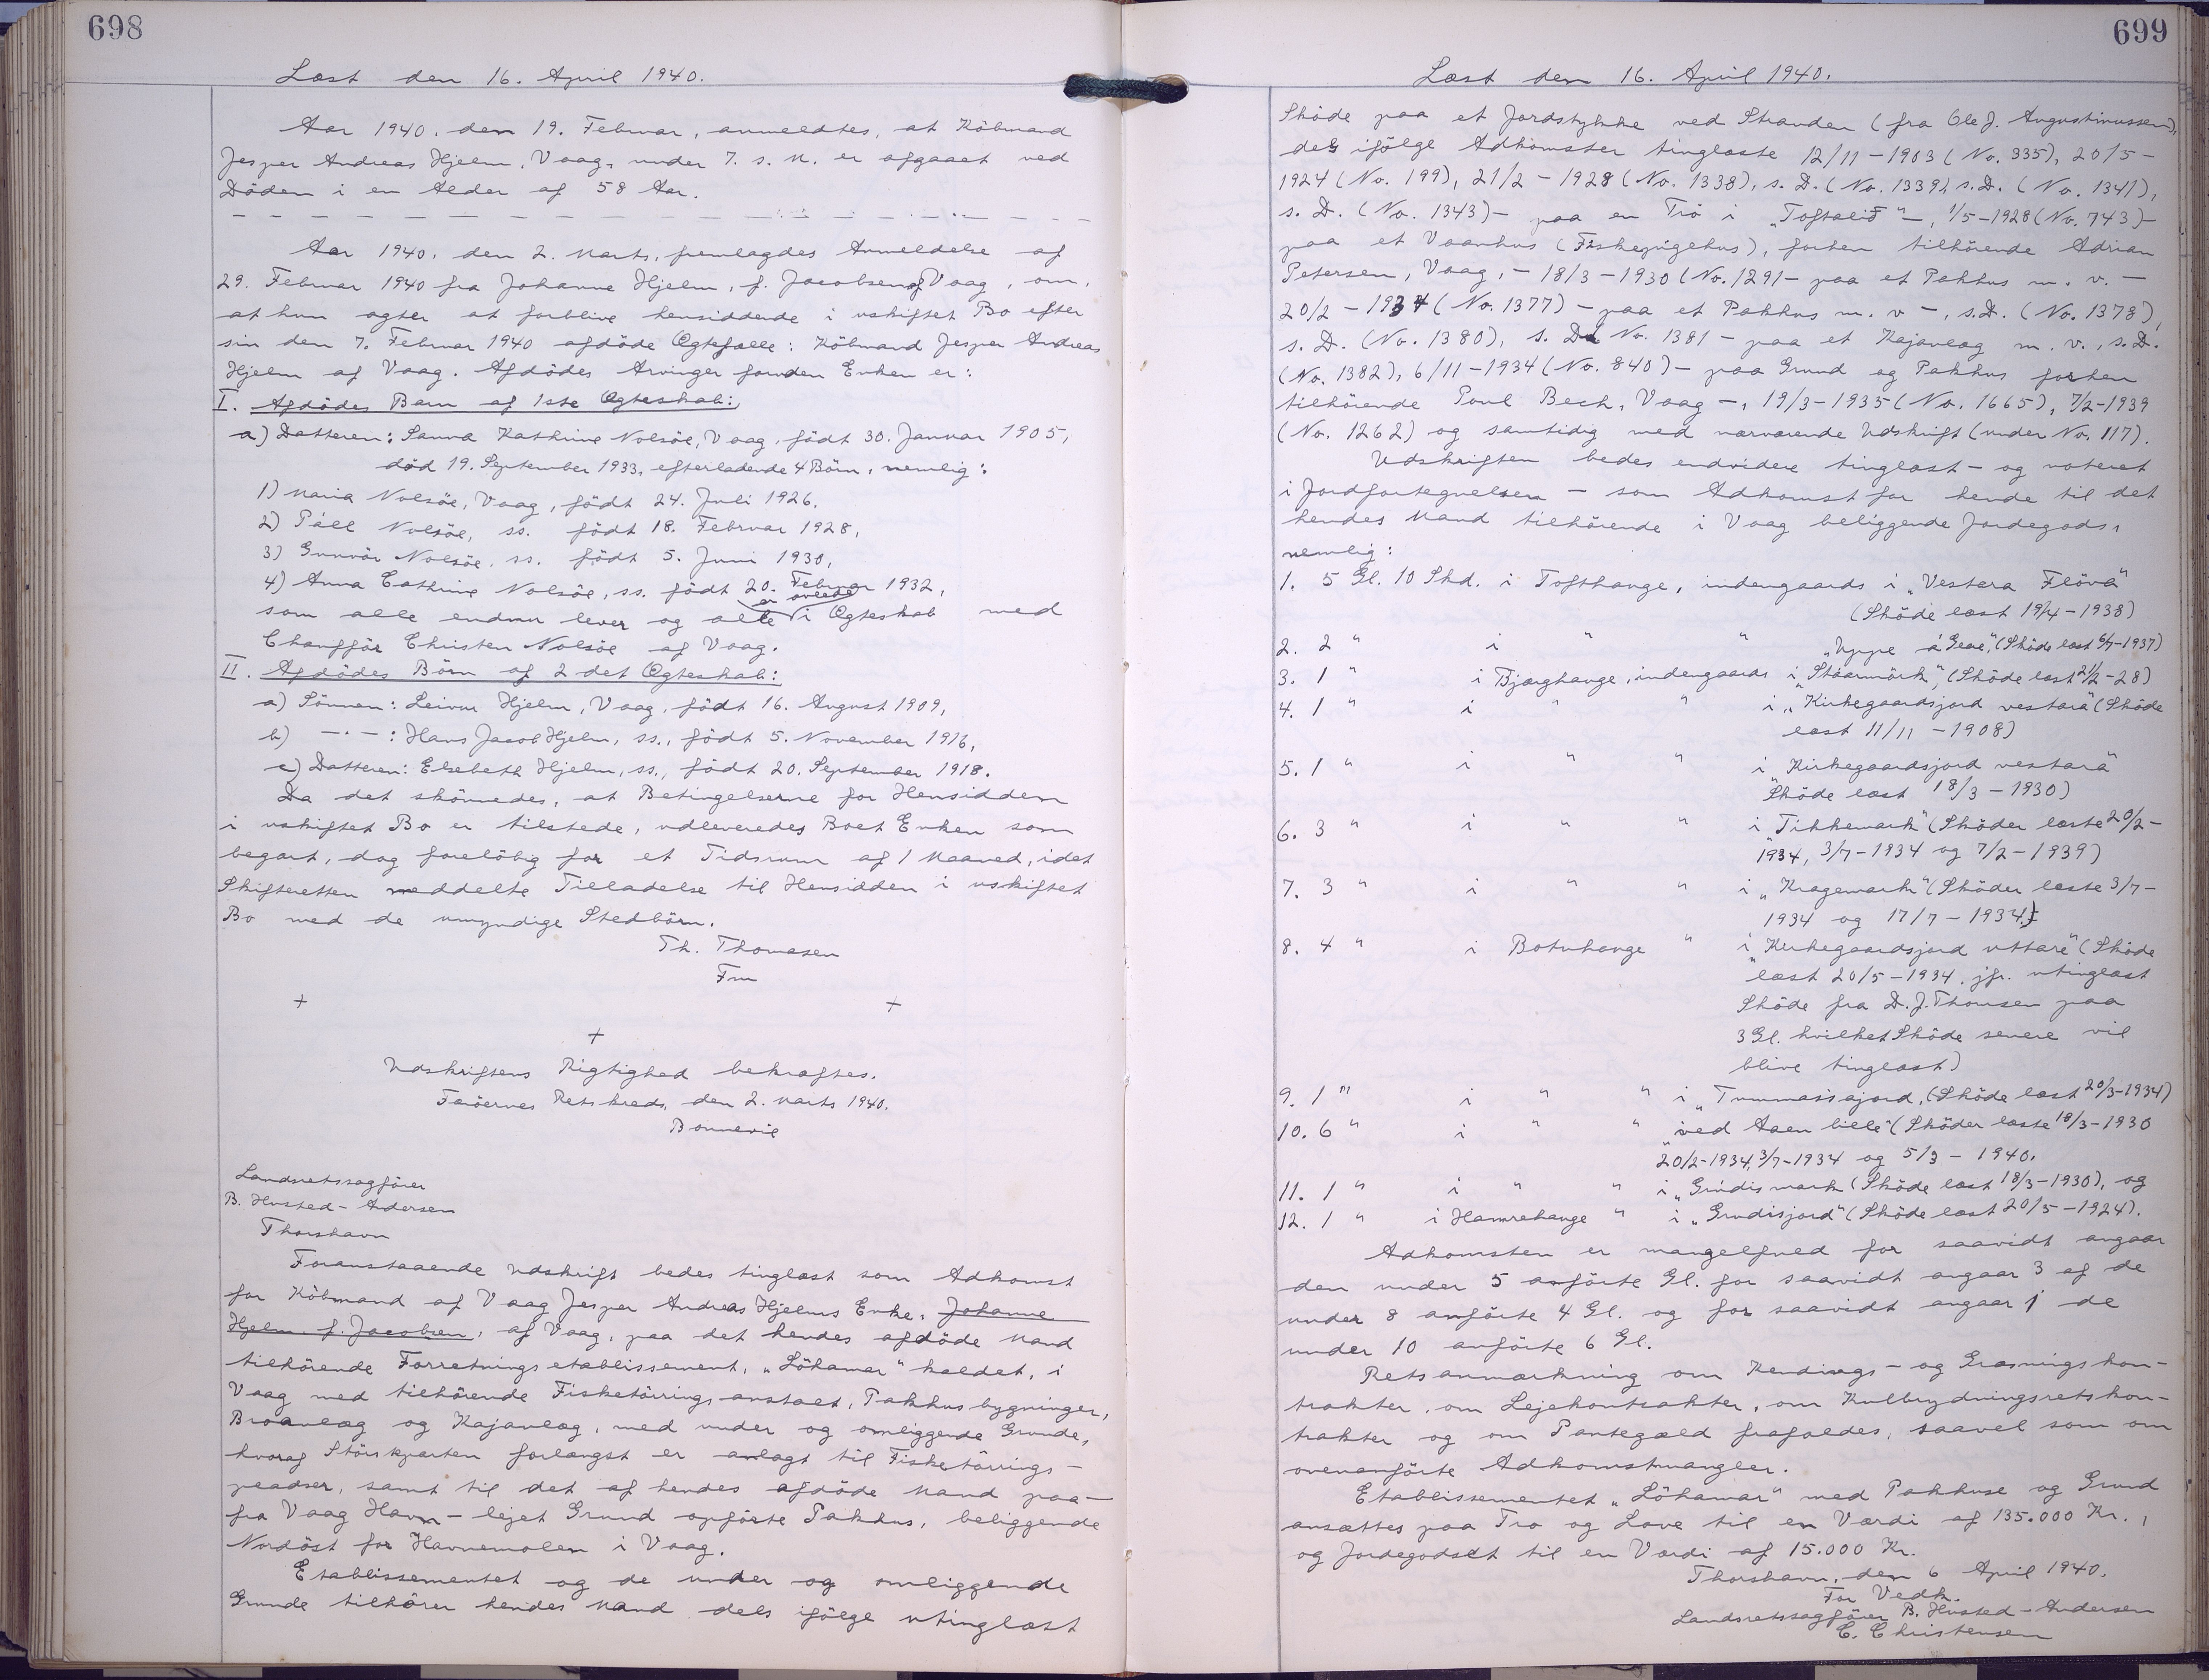 698
Læst den 16. April 1940.
Aar 1940, den 19. Februar, anmeldtes, at Købmand
Jesper Andreas Hjelm, Vaag, under 7. s. M. er afgaaet ved
Döden i en Alder af 58 Aar.
Aar 1940, den 2. Marts, fremlagdes Anmeldelse af
29. Februar 1940 fra Johanne Hjelm, f. Jacobsen, af Vaag, om,
at hun agter at forblive hensiddende i uskiftet Bo efter
sin den 7. Februar 1940 afdöde Ægtefælle: Köbmand Jesper Andreas
Hjelm af Vaag. Afdödes Arvinger foruden Enken er:
I. Afdödes Barn af 1ste Ægteskab:
a) Datteren: Sanna Kathrine Nolsöe, Vaag, födt 30. Januar 1905,
död 19. September 1933, efterladende 4 Börn, nemlig:
1) Maria Nolsöe, Vaag, födt 24. Juli 1926.
2) Páll Nolsöe, ss. födt 18. Februar 1928,
3) Gunvör Nolsöe, ss. födt 5. Juni 1930,
4) Anna Cathrine Nolsöe, ss. födt 20. Februar 1932,
som alle endnu lever og alle er avlede i Ægteskab med
Chaufför Christen Nolsöe af Vaag.
II. Afdödes Börn af 2det Ægteskab:
a) Sönnen: Leivur Hjelm, Vaag, födt 16. August 1909,
b) —·— : Hans Jacob Hjelm, ss., födt 5. November 1916,
c) Datteren: Elsebeth Hjelm, ss., födt 20. September 1918.
Da det skönnedes, at Betingelserne for Hensidden
i uskiftet Bo er tilstede, udleveredes Boet Enken som
begært, dog foreløbig for et Tidsrum af 1 Maaned, idet
Skifteretten meddelte Tilladelse til Hensidden i uskiftet
Bo med de umyndige Stedbörn.
Th. Thomasen
Fm
+ +
+
Udskriftens Rigtighed bekræftes.
Færöernes Retskreds, den 2. Marts 1940.
Bonnevie
Landsretssagförer
B. Husted-Andersen
Thorshavn
Foranstaaende Udskrift bedes tinglæst som Adkomst
for Köbmand af Vaag Jesper Andreas Hjelms Enke, Johanne
Hjelm, f. Jacobsen, af Vaag, paa det hendes afdöde Mand
tilhörende Forretningsetablissement, „Löhamar" kaldet, i
Vaag med tilhörende Fisketörringsanstalt, Pakhusbygninger,
Broanlæg og Kajanlæg, med under og omliggende Grunde,
hvoraf Störsteparten forlængst er anlagt til Fisketörrings-
pladser, samt til det af hendes afdöde Mand paa-
fra Vaag Havn - lejet Grund opförte Pakhus, beliggende
Nordöst for Havnemolen i Vaag.
Etablissementet og de under og omliggende
Grunde tilhörer hendes Mand dels ifölge utinglæst
699
Læst den 16. April 1940.
Sköde paa et Jordstykke ved Stranden (fra Ole J. Augustinussen),
dels ifölge Adkomster tinglæste 12/11-1903 (No. 335), 20/5-
1924 (No. 199), 21/2-1928 (No. 1338), s. D. (No. 1339), s. D. (No. 1341),
s. D. (No. 1343) - paa en Trö i „Toftalið" -, 1/5-1928 (No. 743) -
paa et Vaanhus (Fiskepigehus), forhen tilhörende Adrian
Petersen, Vaag, - 18/3-1930 (No. 1291 - paa et Pakhus m. v. -
20/2-1934 (No. 1377) - paa et Pakhus m. v -, s. D. (No. 1378),
s. D. (No. 1380), s. D. No. 1381 - paa et Kajanlæg m. v., s. D.
(No. 1382), 6/11-1934 (No. 840) - paa Grund og Pakhus forhen
tilhörende Poul Bech, Vaag -, 19/3-1935 (No. 1665), 7/2-1939
(No. 1262) og samtidig med nærværende Udskrift (under No. 117).
Udskriften bedes endvidere tinglæst - og noteret
i Jordfortegnelsen - som Adkomst for hende til det
hendes Mand tilhörende i Vaag beliggende Jordegods,
nemlig:
1. 5 Gl. 10 Skd. i Tofthauge, indengaards i „Vestara Flöva"
(Sköde læst 19/4-1938)
2. 2 " i " " „Uppe á Geae", (Sköde læst 6/7-1937)
3. 1 " i Bjærghauge, indengaards i „Stóarmörk", (Sköde læst 21/2-28)
4. 1 " i " " i „Kirkegaardsjord vestara" (Sköde
læst 11/11-1908)
5. 1 " i " " i „Kirkegaardsjord vestara"
Sköde læst 18/3-1930)
6. 3 " i " " i „Tikkemark" (Sköder læste 20/2-
1934, 3/7-1934 og 7/2-1939)
7. 3 " i " " i „Kragemark" (Sköder læste 3/7-
1934 og 17/7-1934)
8. 4 " i Botnhauge " i „Kirkegaardsjord uttare" (Sköde
læst 20/5-1934, jfr. utinglæst
Sköde fra D. J. Thomsen paa
3 Gl. hvilket Sköde senere vil
blive tinglæst)
9. 1 " i " " i „Tummasajord, (Sköde læst 20/3-1934)
10. 6 " i " " „ved Aaen lille" (Sköder læste 18/3-1930
20/2-1934, 3/7-1934 og 5/3-1940.
11. 1 " i " " i „Grúdismark (Sköde læst 18/3-1930), og
12. 1 " i Hamrehauge " i „Grudisjord" (Sköde læst 20/5-1924).
Adkomsten er mangelfuld for saavidt angaar
den under 5 anförte Gl. for saavidt angaar 3 af de
under 8 anförte 4 Gl. og for saavidt angaar 1 de
under 10 anförte 6 Gl.
Retsanmærkning om Kendings- og Græsningskon-
trakter, om Lejekontrakter, om Kulbrydningsretskon-
trakter og om Pantegæld frafaldes, saavel som om
ovenanförte Adkomstmangler.
Etablissementet „Löhamar" med Pakhuse og Grund
ansættes paa Tro og Love til en Værdi af 135.000 Kr.,
og Jordegodset til en Værdi af 15.000 Kr.
Thorshavn, den 6 April 1940.
For Vedk.
Landsretssagförer B. Husted-Andersen
E. Christensen